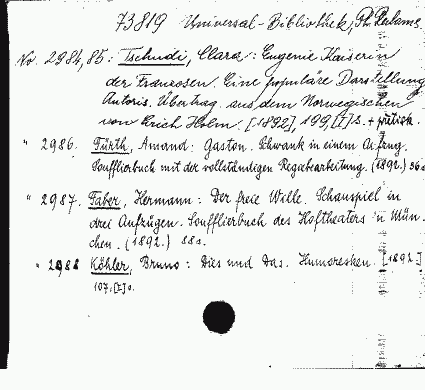 73819 Universal-Bibliothek, Ph. Reclams
No. 2984,85: Tschudi, Clara: Eugenie Kaiserin
der Franzosen. Eine populäre Darstellung
Autoris. Übertrag. aus dem Norwegischen
von Erich Holm. [1892], 199,[I]S.
" 2986. Fürth, Amand: Gaston. Schwank in einem Aufzug.
Soufflierbuch mit der vollständigen Regiebearbeitung. (1892.) 36 s.
" 2987. Faber, Hermann: Der freie Wille. Schauspiel in
drei Aufzügen. Soufflierbuch des Hoftheaters u Mün-
chen. (1892.) 88s.
" 2988 Köhler, Bruno: Dies und Das. Humoresken. [1892]
107,[I]s.